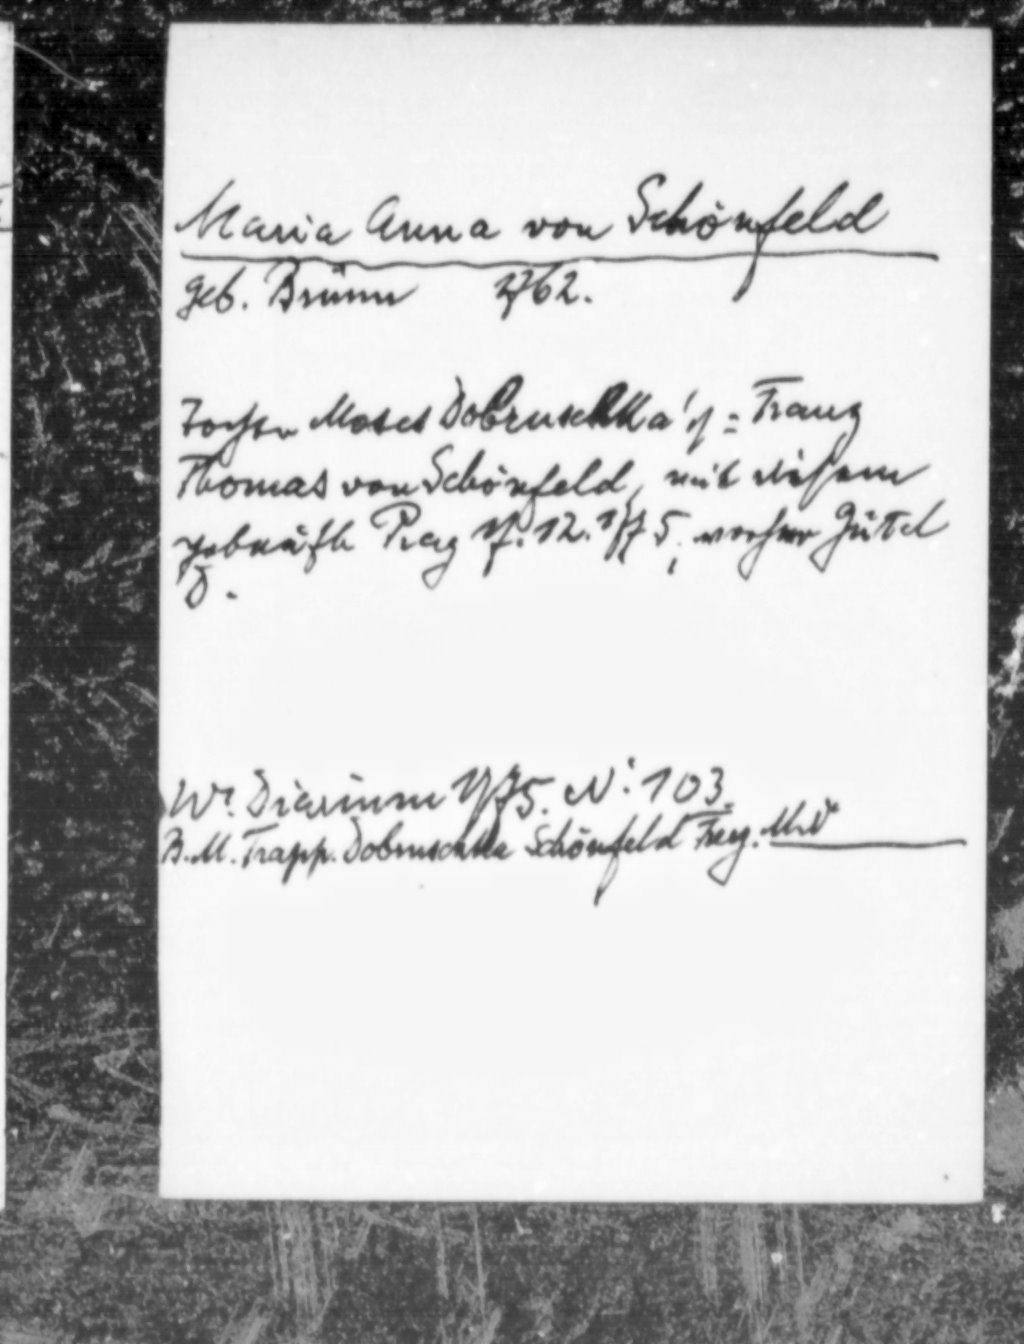 Maria Anna von Schönfeld
geb. Brünn 1762.
Tochter Moses Dobruschka's = Franz
Thomas von Schönfeld, mit diesem
getauft Prag 17. 12. 1775, vorher Gütel
D.
Wr. Diarium 1775. N: 103.
B. M. Trapp. Dobruschka Schönfeld Frey.